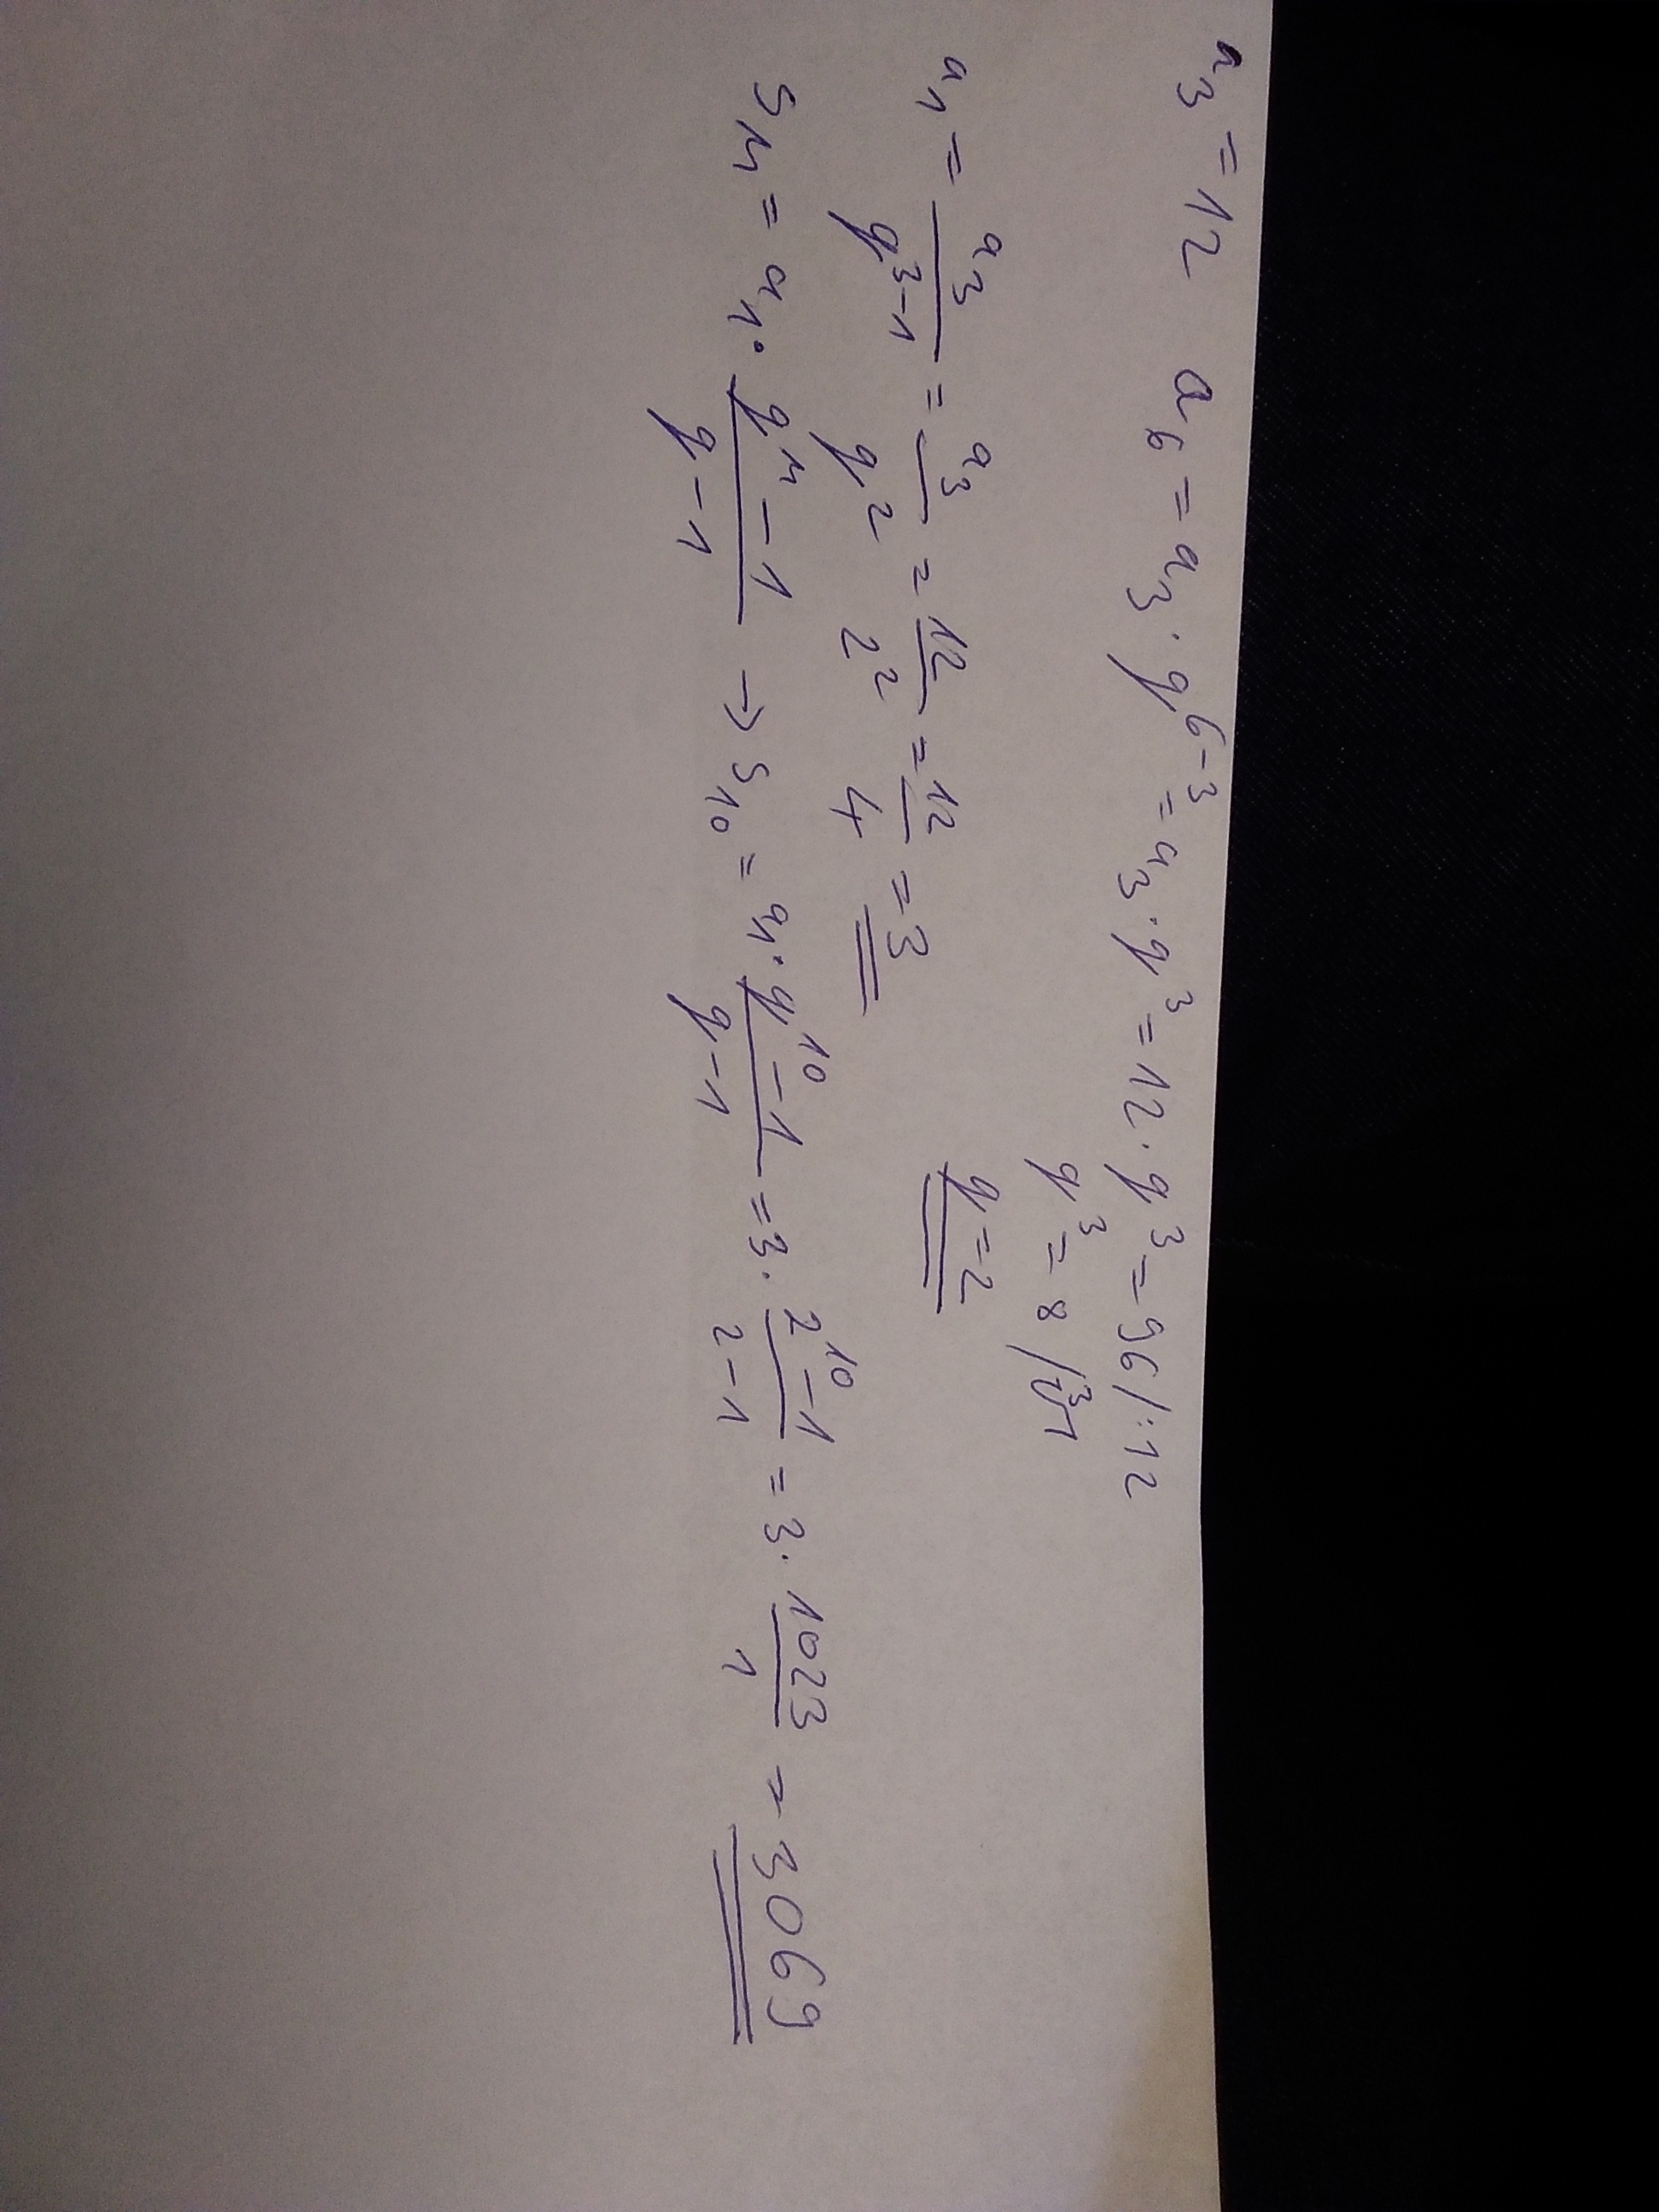 a₃ = 12 a₆ = a₃ · q⁶⁻³ = a₃ · q³ = 12 · q³ = 96 / : 12
q³ = 8 / ∛
q = 2
a₁ = a₃/q³⁻¹ = a₃/q² = 12/2² = 12/4 = 3
sₙ = a₁ · (qⁿ - 1)/(q - 1) → s₁₀ = a₁ · (q¹⁰ - 1)/(q - 1) = 3 · (2¹⁰ - 1)/(2 - 1) = 3 · 1023/1 = 3069